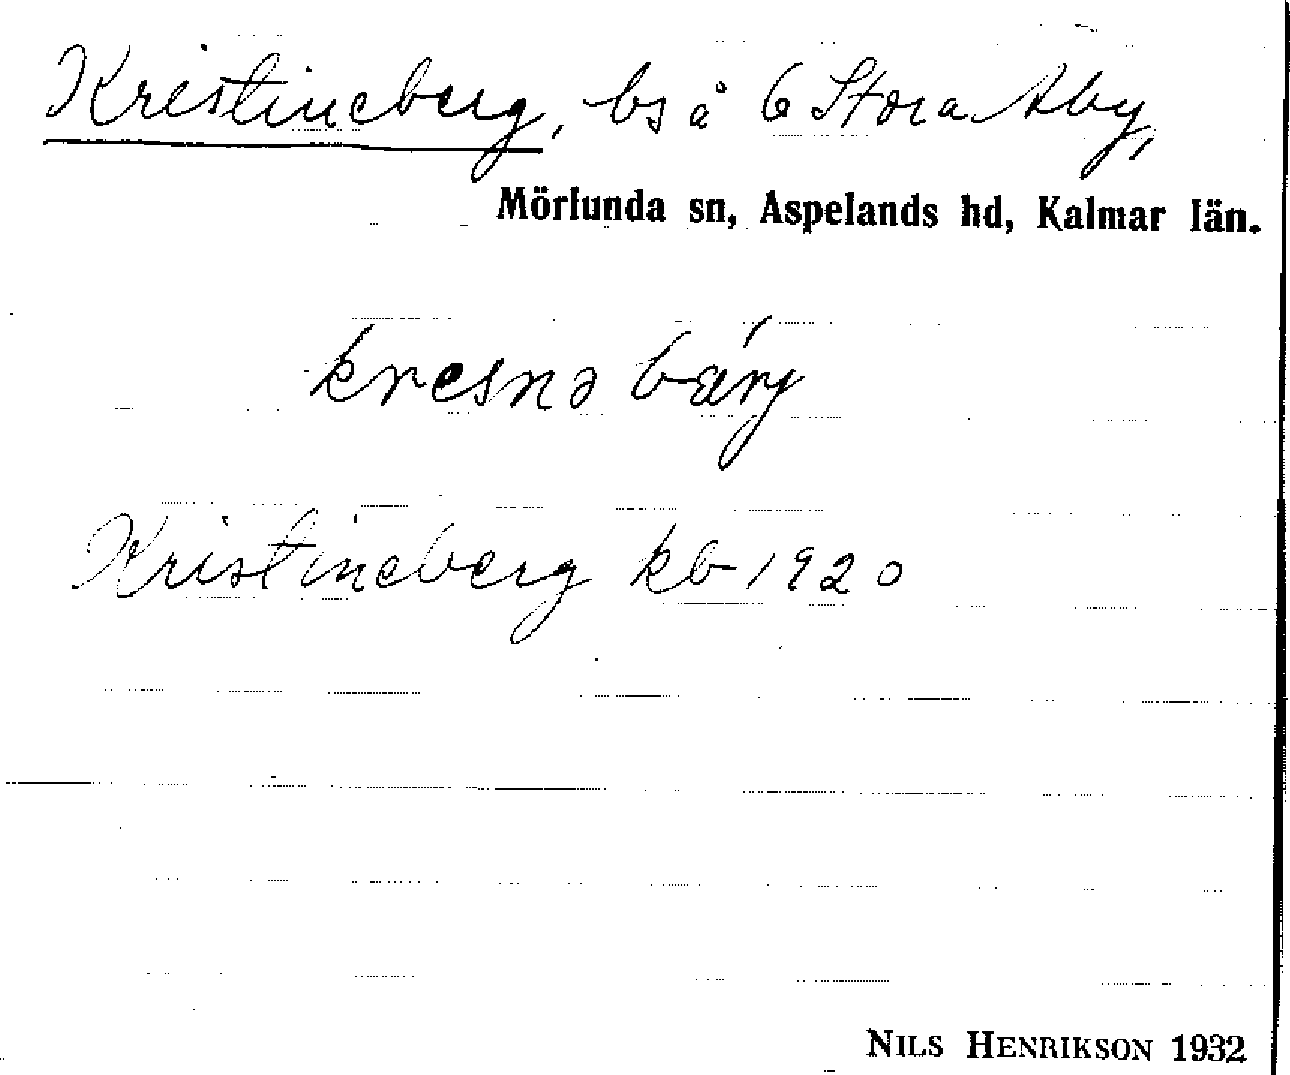 Kristineberg, bs å 6 Stora Aby,
Mörlunda sn, Aspelands hd, Kalmar län.
kresnə bärj
Kristineberg kb 1920
NILS HENRIKSON 1932